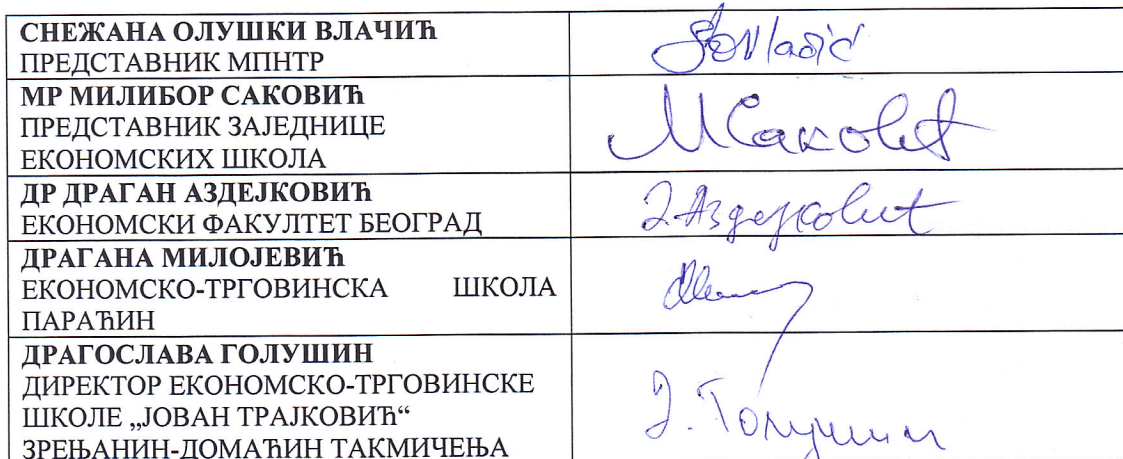 СНЕЖАНА ОЛУШКИ ВЛАЧИЋ
ПРЕДСТАВНИК МПНТР
МР МИЛИБОР САКОВИЋ
ПРЕДСТАВНИК ЗАЈЕДНИЦЕ
ЕКОНОМСКИХ ШКОЛА
М Саковић
ДР ДРАГАН АЗДЕЈКОВИЋ
ЕКОНОМСКИ ФАКУЛТЕТ БЕОГРАД
Д. Аздејковић
ДРАГАНА МИЛОЈЕВИЋ
ЕКОНОМСКО-ТРГОВИНСКА ШКОЛА
ПАРАЋИН
ДРАГОСЛАВА ГОЛУШИН
ДИРЕКТОР ЕКОНОМСКО-ТРГОВИНСКЕ
ШКОЛЕ „ЈОВАН ТРАЈКОВИЋ“
ЗРЕЊАНИН-ДОМАЋИН ТАКМИЧЕЊА
Д. Голушин